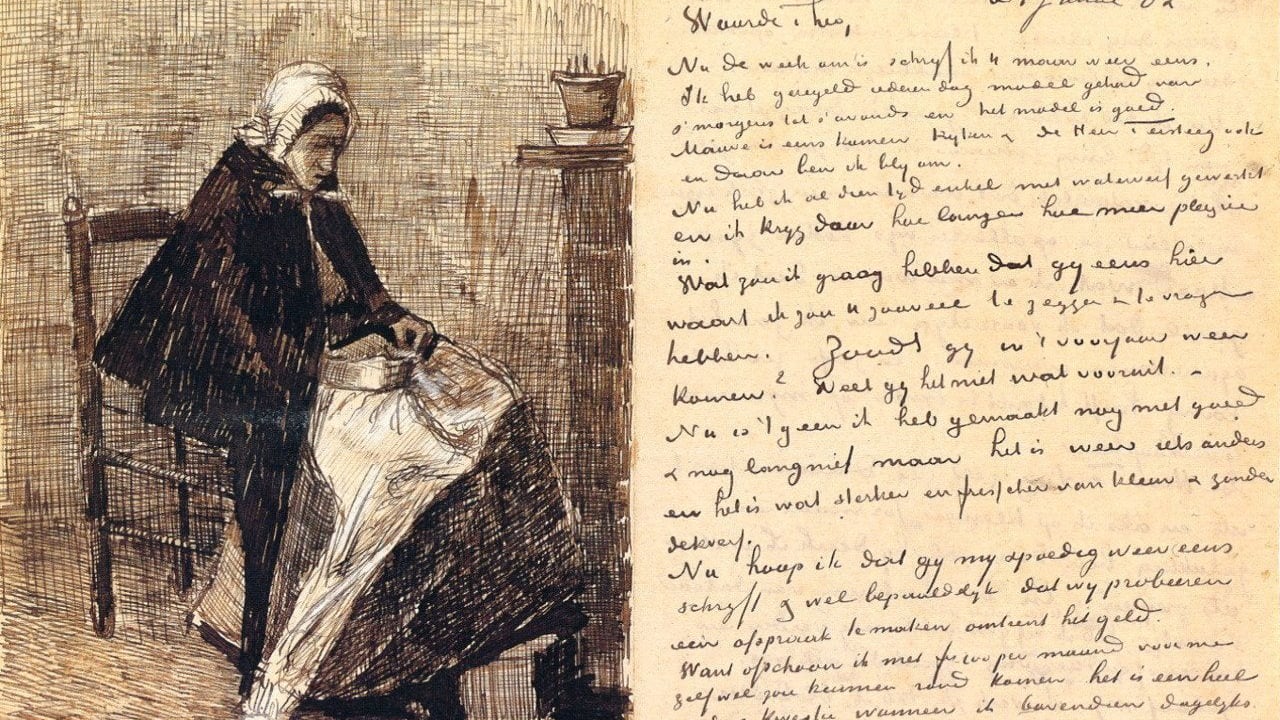 Waarde Theo,
Nu de week om is schrijf ik U maar weer eens.
Ik heb geregeld iederen dag model gehad van
s'morgens tot s'avonds en het model is goed.
Mauve is eens komen kijken & de Heer Tersteeg ook
en daar ben ik blij om.
Nu heb ik al dien tijd enkel met waterverf gewerkt
en ik krijg daar hoe langer hoe meer plezier
in.
Wat zou ik graag hebben dat gij eens hier
waart ik zou U zooveel te zeggen & te vragen
hebben. Zoudt gij in 't voorjaar weer
komen? Weet gij het niet wat vooruit. –
Nu is 't geen ik heb gemaakt nog niet goed
& nog lang niet maar het is weer iets anders
en het is wat sterker en frisscher van kleur & zonder
dekverf.
Nu hoop ik dat gij mij spoedig weer eens
schrijft & wel bepaaldelijk dat wij probeeren
een afspraak te maken omtrent het geld.
Want ofschoon ik met per maand voor me
zelf wel zou kunnen rond komen het is een heel
kwestie wanneer ik bovendien dagelijks